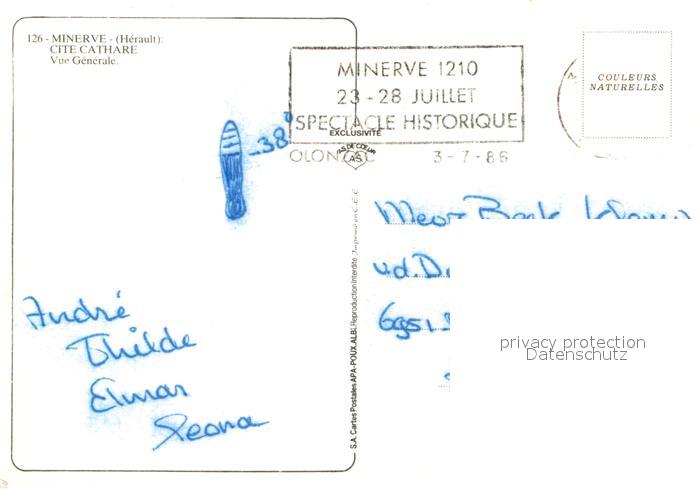 126 - MINERVE - (Hérault):
CITE CATHARE
Vue Générale.
MINERVE 1210
23 - 28 JUILLET
SPECTACLE HISTORIQUE
OLONZAC 3-7-86
EXCLUSIVITÉ
AS DE CŒUR
A.S.
COULEURS
NATURELLES
-38°
André
Thilde
Elmar
S.A. Cartes Postales APA-POUX, ALBI. Reproduction Interdite. Imprimé en C.E.E.
v.d.
privacy protection
Datenschutz